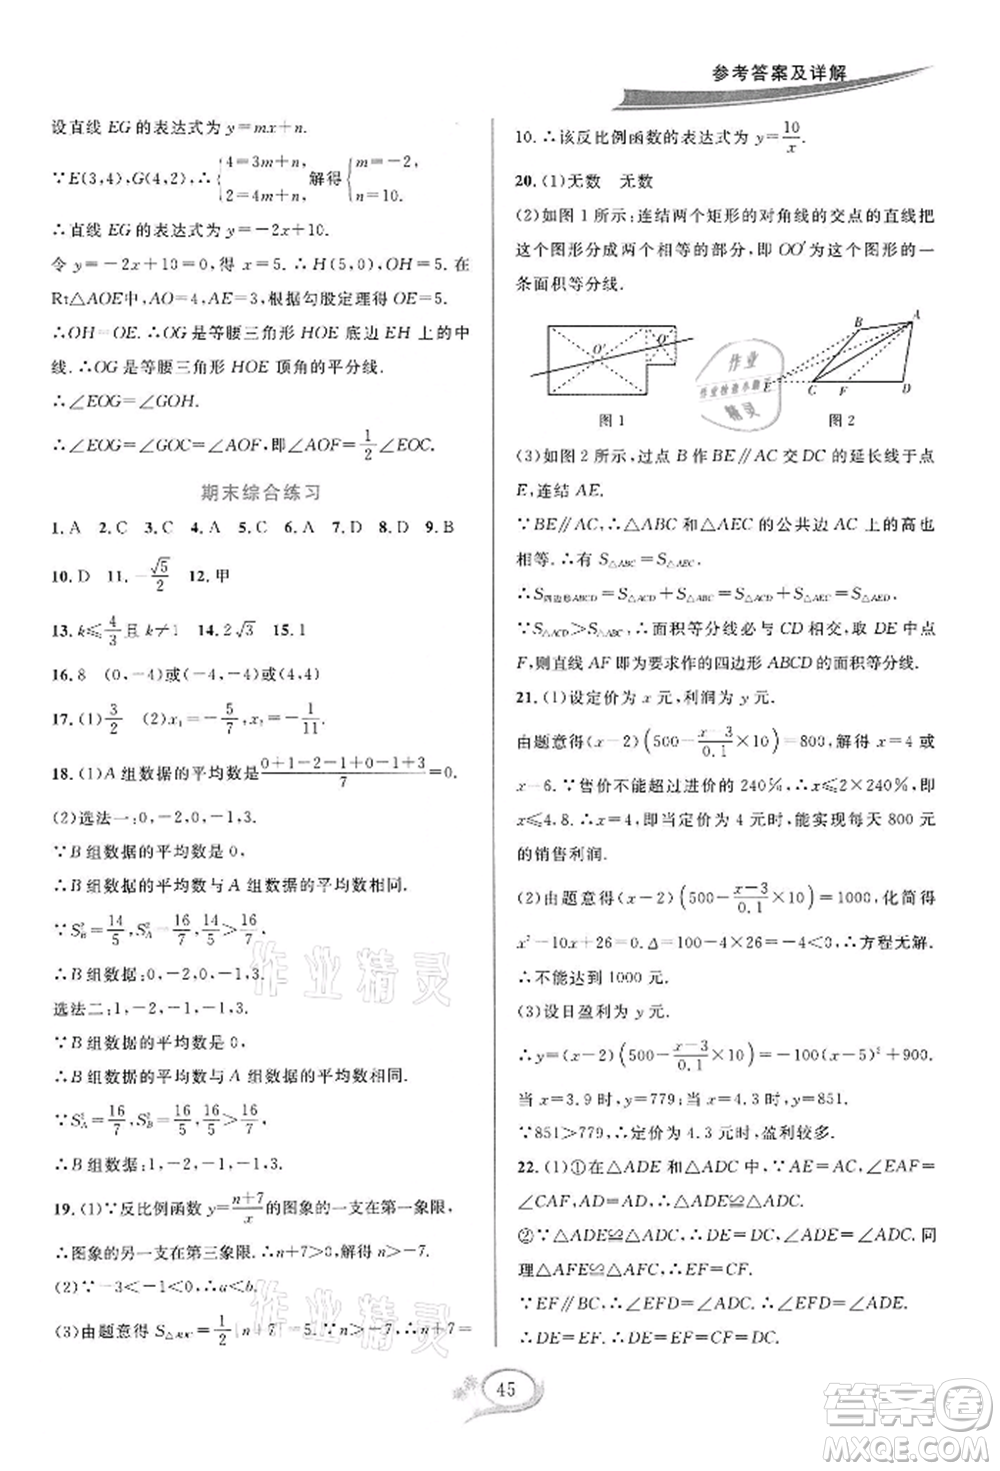 参考答案及详解
设直线 EG 的表达式为 y=mx+n.
∵E(3,4),G(4,2),∴{4=3m+n, 2=4m+n, 解得{m=-2, n=10.
∴直线 EG 的表达式为 y=-2x+10.
令 y=-2x+10=0,得 x=5.∴H(5,0),OH=5.在
Rt△AOE中,AO=4,AE=3,根据勾股定理得 OE=5.
∴OH=OE.∴OG 是等腰三角形 HOE 底边 EH 上的中
线.∴OG 是等腰三角形 HOE 顶角的平分线.
∴∠EOG=∠GOH.
∴∠EOG=∠GOC=∠AOF,即∠AOF=1/2∠EOC.
期末综合练习
1.A 2.C 3.C 4.A 5.C 6.A 7.D 8.D 9.B
10.D 11.-√5/2 12.甲
13.k≤4/3且 k≠1 14.2√3 15.1
16.8 (0,-4)或(-4,-4)或(4,4)
17.(1)3/2 (2)x₁=-5/7,x₂=-1/11.
18.(1)A 组数据的平均数是(0+1-2-1+0-1+3)/7=0.
(2)选法一:0,-2,0,-1,3.
∵B 组数据的平均数是 0,
∴B 组数据的平均数与 A 组数据的平均数相同.
∵S²B=14/5,S²A=16/7,14/5>16/7
∴B 组数据:0,-2,0,-1,3.
选法二:1,-2,-1,-1,3.
∵B 组数据的平均数是 0,
∴B 组数据的平均数与 A 组数据的平均数相同.
∵S²A=16/7,S²B=16/5,16/5>16/7
∴B 组数据:1,-2,-1,-1,3.
19.(1)∵反比例函数 y=(n+7)/x的图象的一支在第一象限,
∴图象的另一支在第三象限.∴n+7>0.∴n>-7.
(2)∵-3<-1<0,∴a<b.
(3)由题意得 S△ABC=1/2|n+7|=5.∵n>-7,∴n+7=
10.∴该反比例函数的表达式为 y=10/x.
20.(1)无数 无数
(2)如图 1 所示:连结两个矩形的对角线的交点的直线把
这个图形分成两个相等的部分,即 OO′为这个图形的一
条面积等分线.
O′ O′
图 1
B A E C F D
图 2
(3)如图 2 所示,过点 B 作 BE∥AC 交 DC 的延长线于点
E,连结 AE.
∵BE∥AC,∴△ABC 和△AEC 的公共边 AC 上的高也
相等.∴有 S△ABC=S△AEC.
∴S四边形ABCD=S△ACD+S△ABC=S△ACD+S△AEC=S△AED.
∵S△ACD>S△ABC,∴面积等分线必与 CD 相交,取 DE 中点
F,则直线 AF 即为要求作的四边形 ABCD 的面积等分线.
21.(1)设定价为 x 元,利润为 y 元.
由题意得(x-2)(500-(x-3)/0.1×10)=800,解得 x=4或
x-6.∵售价不能超过进价的 240%,∴x≤2×240%,即
x≤4.8.∴x=4,即当定价为 4 元时,能实现每天 800 元
的销售利润.
(2)由题意得(x-2)(500-(x-3)/0.1×10)=1000,化简得
x²-10x+26=0.Δ=100-4×26=-4<0,∴方程无解.
∴不能达到 1000 元.
(3)设日盈利为 y 元.
∴y=(x-2)(500-(x-3)/0.1×10)=-100(x-5)²+900.
当 x=3.9 时,y=779;当 x=4.3 时,y=851.
∵851>779,∴定价为 4.3 元时,盈利较多.
22.(1)①在△ADE 和△ADC 中,∵AE=AC,∠EAF=
∠CAD,AD=AD,∴△ADE≌△ADC.
②∵△ADE≌△ADC,∴DE=DC,∠ADE=∠ADC.同
理△AFE≌△AFC,∴EF=CF.
∵EF∥BC,∴∠EFD=∠ADC.∴∠EFD=∠ADE.
∴DE=EF.∴DE=CF.
45
作业精灵
作业精灵
作业
作业检查小助手
精灵
答案圈
MXQE.COM